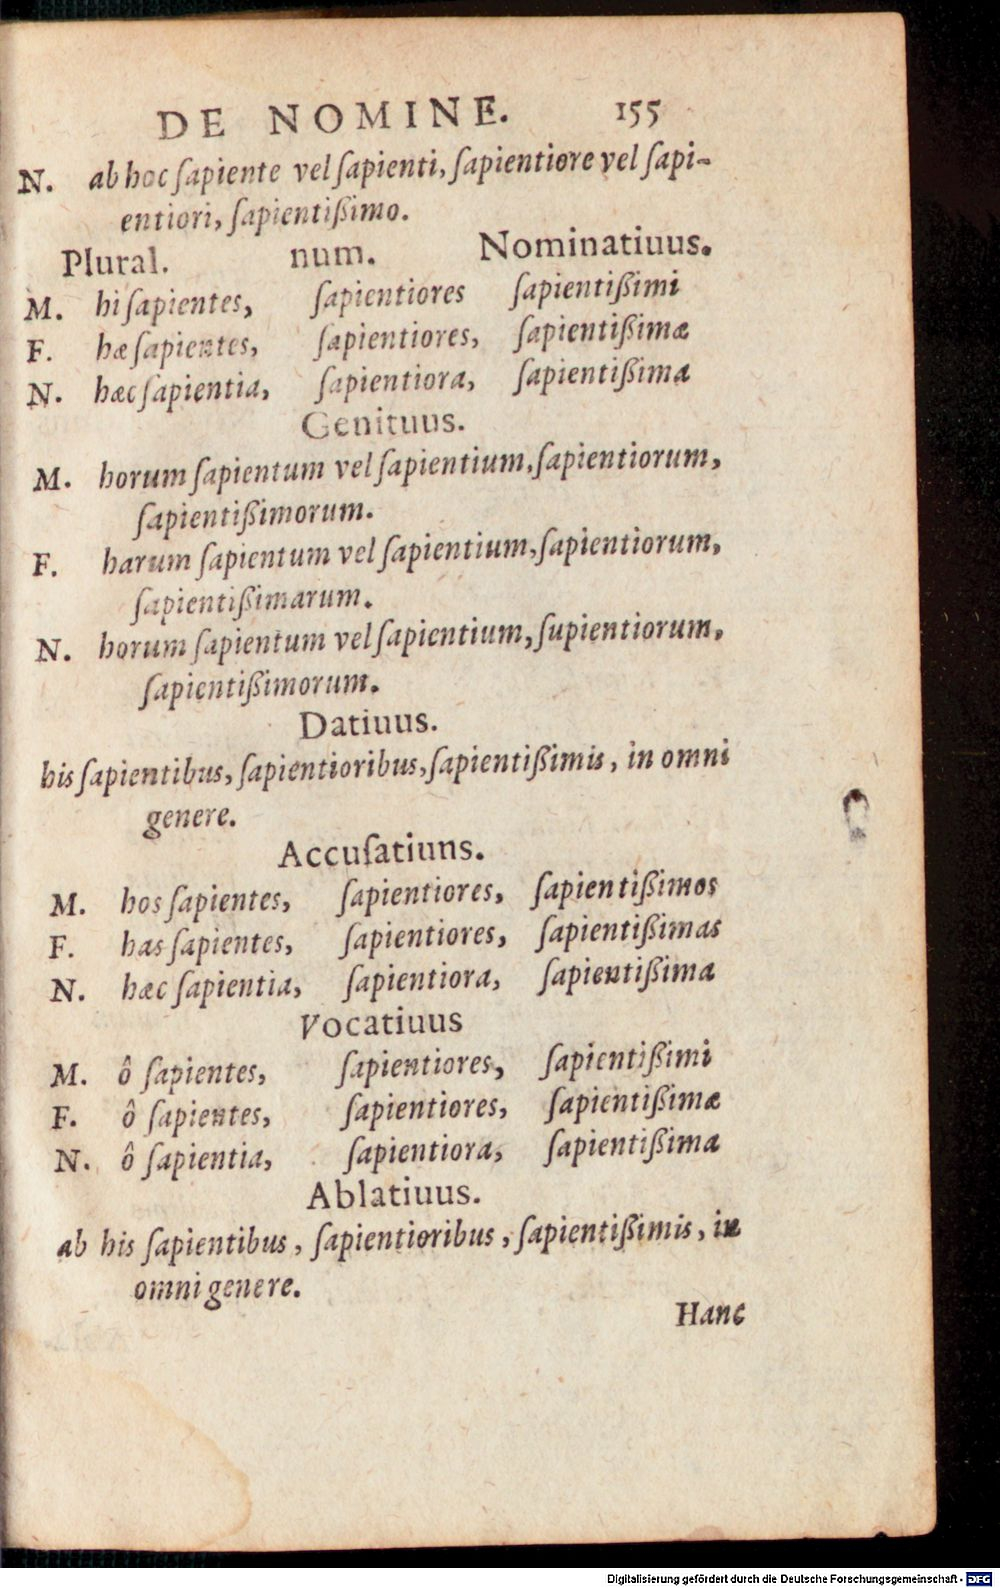 DE NOMINE. 155
N. ab hoc ſapiente vel ſapienti, ſapientiore vel ſapi-
entiori, ſapientißimo.
Plural. num. Nominatiuus.
M. hi ſapientes, ſapientiores ſapientißimi
F. hæ ſapientes, ſapientiores, ſapientißimæ
N. hæc ſapientia, ſapientiora, ſapientißima
Genituus.
M. horum ſapientum vel ſapientium, ſapientiorum,
ſapientißimorum.
F. harum ſapientum vel ſapientium, ſapientiorum,
ſapientißimarum.
N. horum ſapientum vel ſapientium, ſupientiorum,
ſapientißimorum.
Datiuus.
his ſapientibus, ſapientioribus, ſapientißimis, in omni
genere.
Accuſatiuns.
M. hos ſapientes, ſapientiores, ſapientißimos
F. has ſapientes, ſapientiores, ſapientißimas
N. hæc ſapientia, ſapientiora, ſapientißima
Vocatiuus
M. ô ſapientes, ſapientiores, ſapientißimi
F. ô ſapientes, ſapientiores, ſapientißimæ
N. ô ſapientia, ſapientiora, ſapientißima
Ablatiuus.
ab his ſapientibus, ſapientioribus, ſapientißimis, in
omni genere.
Hanc
Digitalisierung gefördert durch die Deutsche Forschungsgemeinschaft - DFG